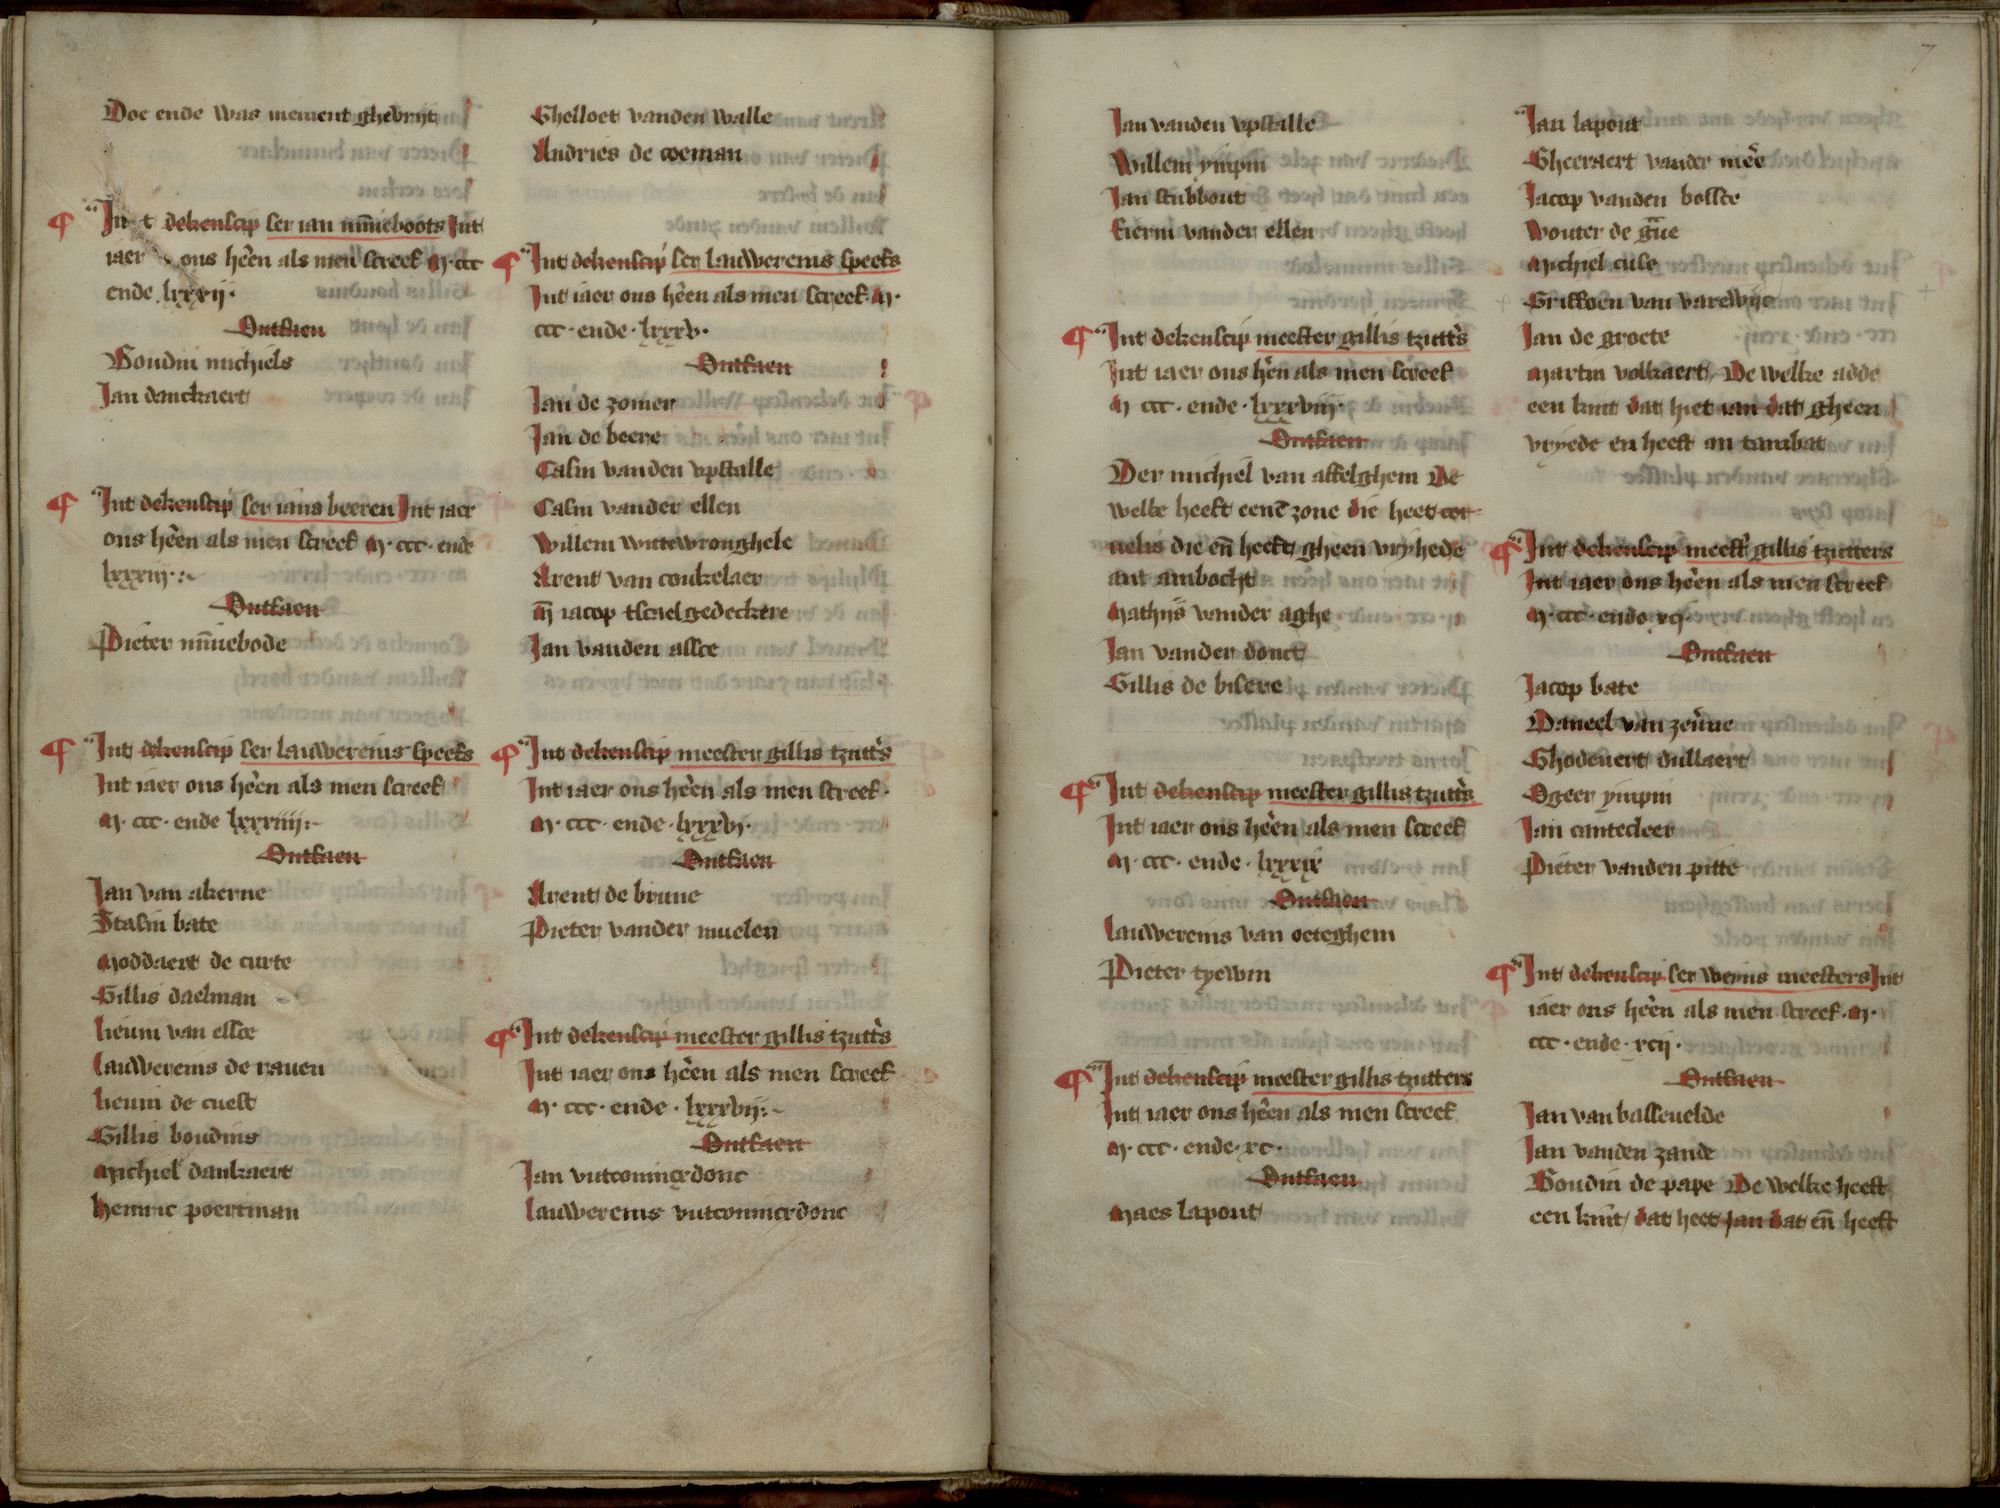 Doe ende was niement ghevrijt
Int dekenscip ser ian minneboots Int
iaer ons heren als men screef M ccc
ende lxxxij·
Ontfaen
Boudin michiels
Jan danckaert
Int dekenscip ser ians beeren Int iaer
ons heren als men screef M· ccc· ende
lxxxiij·
Ontfaen
Pieter minnebode
Int dekenscip ser lauwereins speets
Int iaer ons heren als men screef
M· ccc· ende lxxxiiij·
Ontfaen
Jan van akerne
Stasin bate
Moddaert de curte
Gillis daelman
lieuin van essce
lauwereins de rauen
lieuin de cuelt
Gillis boudins
Michiel dankaert
heinric poertman
Ghelloet vanden walle
Andries de coeman
Int dekenscip ser lauwereins speets
Int iaer ons heren als men screef· M·
ccc· ende· lxxxv·
Ontfaen
Jan de zomer
Jan de beere
Casin vanden vpstalle
Casin vander ellen
Willem wittewronghele
Arent van conkelaer
M iacop tscaelgedeckere
Jan vanden assce
Int dekenscip meester gillis tzutters
Int iaer ons heren als men screef·
M· ccc· ende· lxxxvj·
Ontfaen
Arent de brune
Pieter vander muelen
Int dekenscip meester gillis tzutters
Int iaer ons heren als men screef
M· ccc· ende· lxxxvij·
Ontfaen
Jan vutcomingedonc
lauwereins vutcomingedonc
7
Jan vanden vpstalle
Willem ympin
Jan stubbout
Lierin vander ellen
Int dekenscip meester gillis tzutters
Int iaer ons heren als men screef
M ccc· ende· lxxxviij·
Ontfaen
Der michiel van affelghem De
welke heeft eenen zone die heet cor
nelis die en heeft gheen vryhede
ant ambocht
Mathijs vander aghe
Jan vander donct
Gillis de bisere
Int dekenscip meester gillis tzutters
Int iaer ons heren als men screef
M· ccc· ende· lxxxix
Ontfaen
lauwereins van oeteghem
Pieter tyewin
Int dekenscip meester gillis tzutters
Int iaer ons heren als men screef
M· ccc· ende· xc·
Ontfaen
Maes lapout
Jan lapout
Gheeraert vander mere
Jacop vanden bossce
Wouter de graue
Michiel cuse
Griffoen van varewijc
Jan de groete
Martin volkaert De welke adde
een kint dat hiet ian dat gheen
vryede en heeft an tambat
Int dekenscip meester gillis tzutters
Int iaer ons heren als men screef
M· ccc· ende xcj·
Ontfaen
Jacop bate
Daneel van zeuene
Ghodeuert dullaert
Ogeer ympin
Jan cantecleer
Pieter vanden pitte
Int dekenscip ser weyns meesters Int
iaer ons heren als men screef· M·
ccc· ende· xcij·
Ontfaen
Jan van basseuelde
Jan vanden zande
Boudin de pape De welke heeft
een kint dat heet Jan dat en heeft